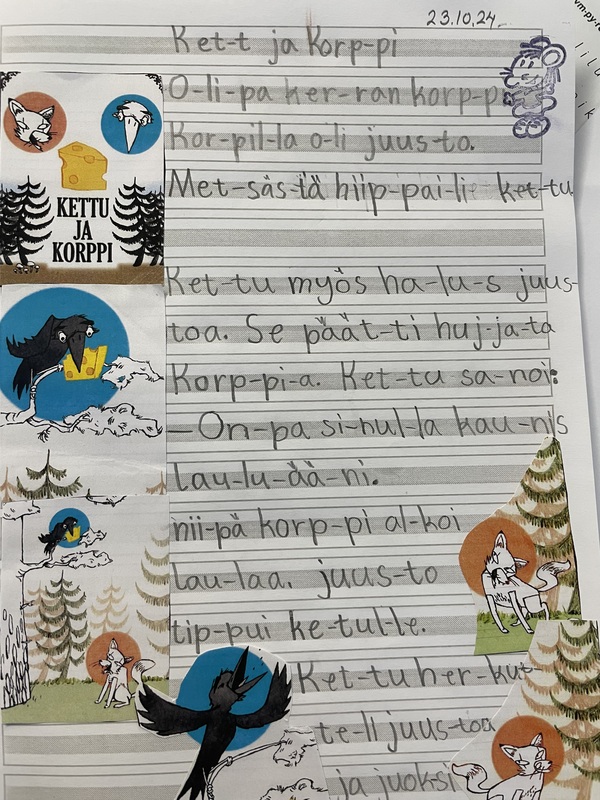 23.10.24
Ket-t ja Korp-pi
O-li-pa ker-ran korp-p
Kor-pil-la o-li juus-to.
Met-säs-tä hiip-pai-li ket-tu
Ket-tu myös ha-lu-s juus-
toa. Se päät-ti huj-ja-ta
Korp-pi-a. Ket-tu sa-noi:
—On-pa si-nul-la kau-nis
lau-lu-ää-ni.
nii-pä korp-pi al-koi
lau-laa. juus-to
tip-pui ke-tul-le.
Ket-tu her-kut-
te-li juus-toa
ja juoksi
KETTU
JA
KORPPI